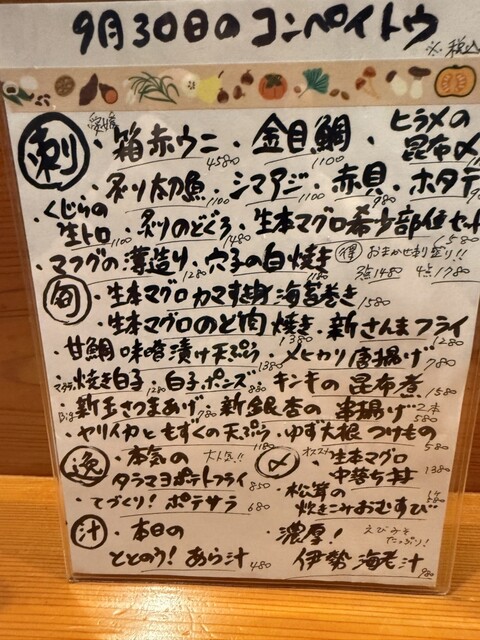 9月30日のコンペイトウ
※税込
刺 愛媛 ・箱赤ウニ 4580 ・金目鯛 1100 ・ヒラメの昆布〆 1100
・炙り太刀魚 1100 ・シマアジ 1100 ・赤貝 980 ・ホタテ
・くじらの生トロ 1100 ・炙りのどぐろ 1480 ・生本マグロ希少部位セット 1580
・マフグの薄造り 1280 ・穴子の白焼き 1180 得 おまかせ刺盛り!! 3点1480 4点1780
旬 ・生本マグロカマすき身海苔巻き 1580
・生本マグロのど肉焼き 1380 ・新さんまフライ 1280
・甘鯛味噌漬け天ぷら 1380 ・メヒカリ唐揚げ 780
マダラ 焼き白子 1280 ・白子ポンズ 880 ・キンキの昆布煮 1580
Big 新玉さつまあげ 780 新銀杏の串揚げ 2本 580
・ヤリイカともずくの天ぷら 1180 ・ゆず大根つけもの 580
逸 ・本気の 大人気!! タラマヨポテトフライ 850
・てづくり!ポテサラ 680
〆 オススメ ・生本マグロ中落ち丼 1380
・松茸の炊きこみおむすび 580
汁 ・本日のととのう!あら汁 480
・濃厚! えびみそたっぷり! 伊勢海老汁 980